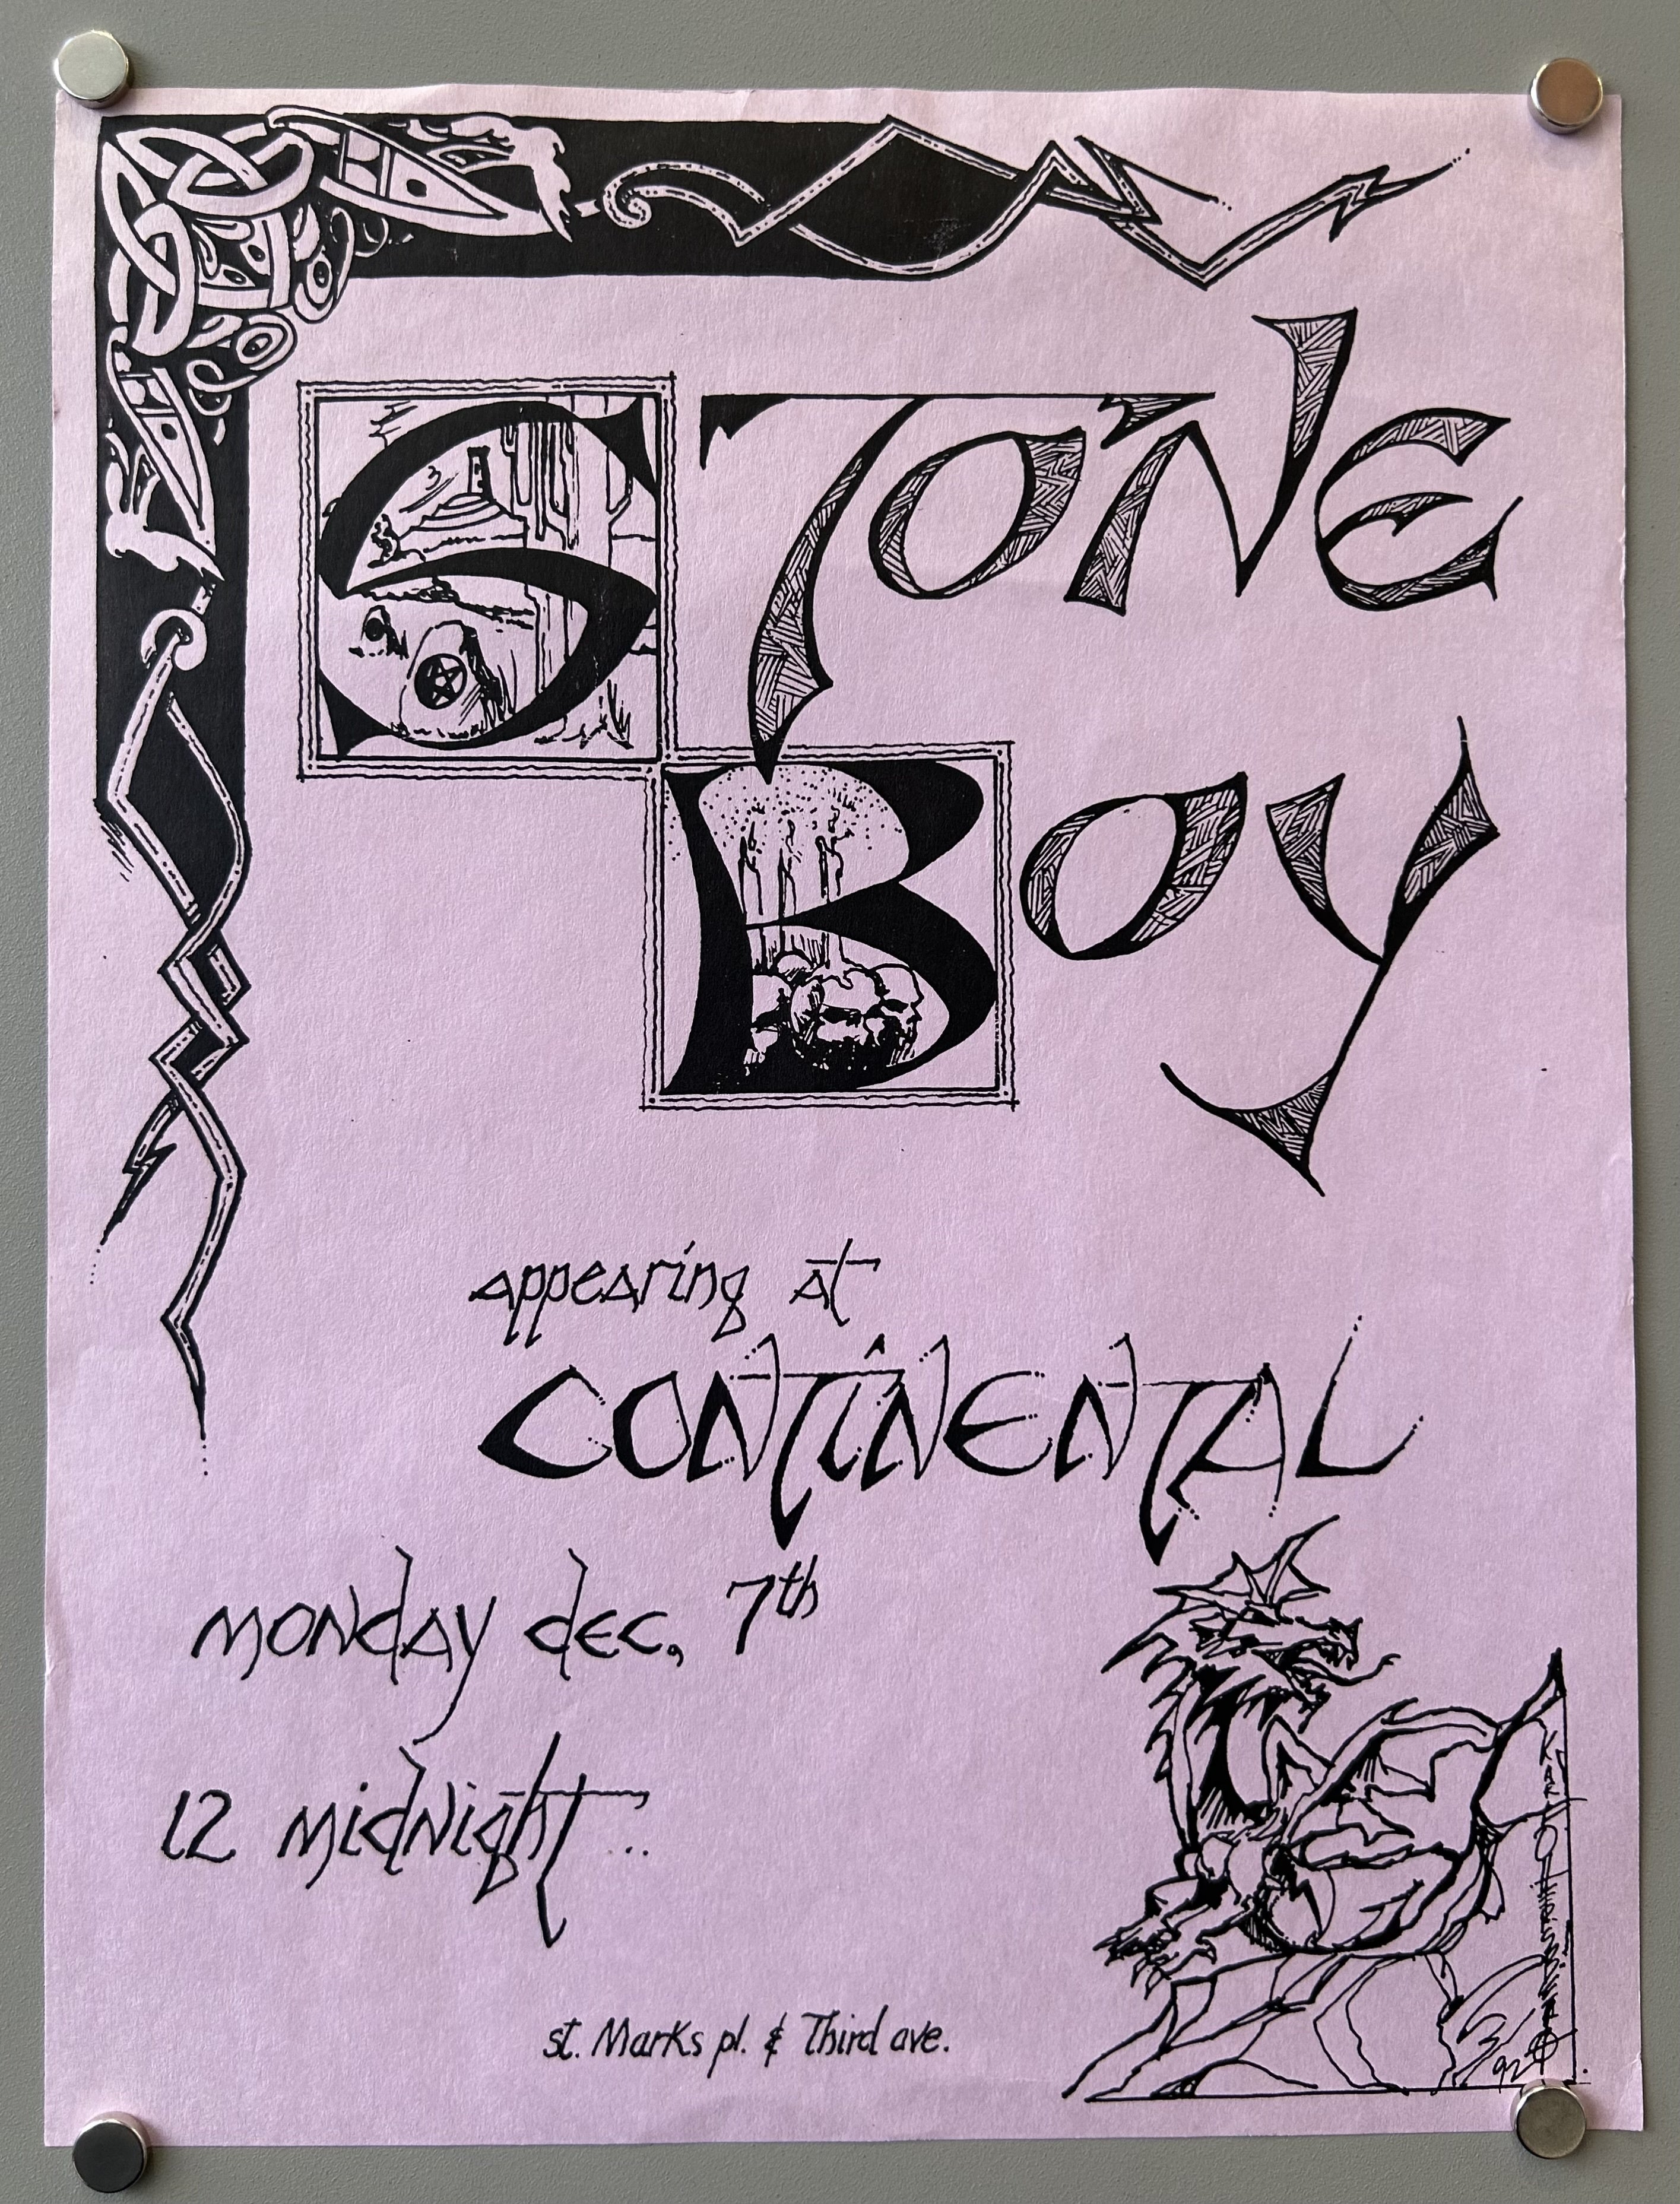 STONE
BOY
appearing at
CONTINENTAL
monday dec. 7th
12 midnight...
st. Marks pl. & Third ave.
3/92